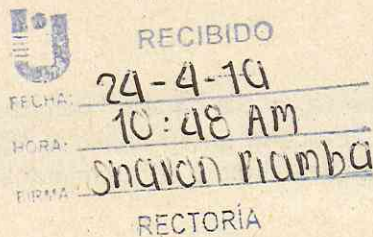 RECIBIDO
FECHA: 24-4-19
HORA: 10:48 AM
FIRMA: Sharon
RECTORÍA